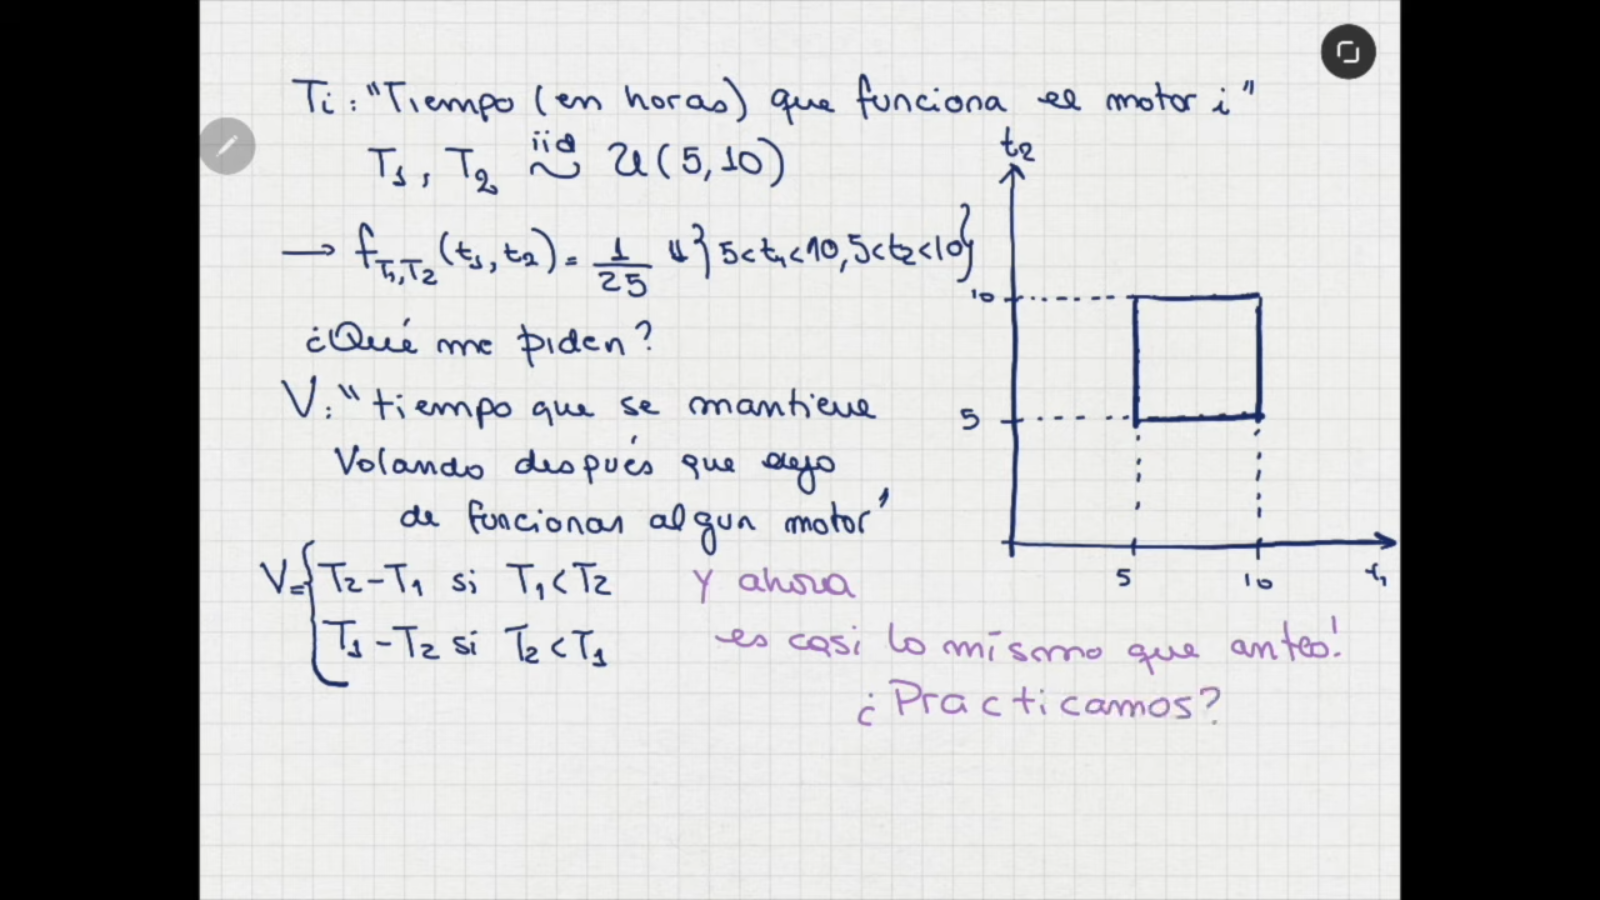 Ti: "Tiempo (en horas) que funciona el motor i"
T1, T2 iid ~ U(5,10)
→ fT1,T2(t1,t2) = 1/25 1{5<t1<10, 5<t2<10}
¿Qué me piden?
V: "tiempo que se mantiene
Volando después que dejo
de funcionar algun motor"
V= { T2-T1 si T1<T2
T1-T2 si T2<T1
t2
10
5
5 10 t1
Y ahora
es casi lo mismo que antes!
¿Practicamos?